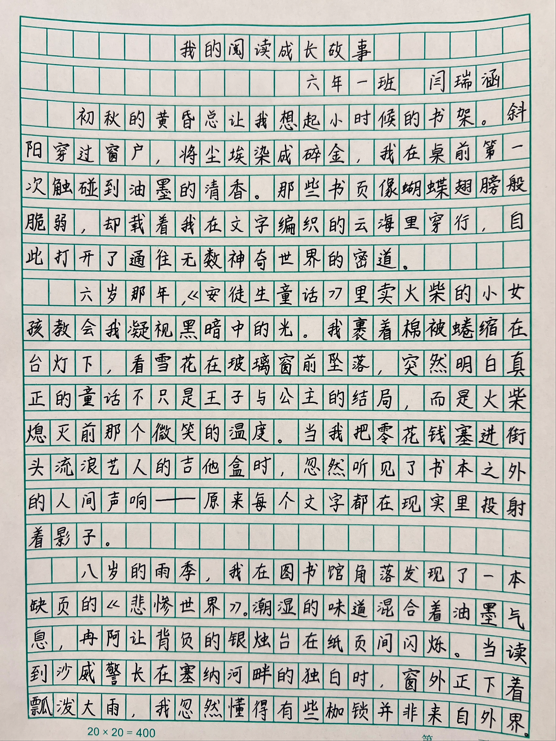 我的阅读成长故事
六年一班 闫瑞涵
初秋的黄昏总让我想起小时候的书架。斜
阳穿过窗户，将尘埃染成碎金，我在桌前第一
次触碰到油墨的清香。那些书页像蝴蝶翅膀般
脆弱，却载着我在文字编织的云海里穿行，自
此打开了通往无数神奇世界的密道。
六岁那年，《安徒生童话》里卖火柴的小女
孩教会我凝视黑暗中的光。我裹着棉被蜷缩在
台灯下，看雪花在玻璃窗前坠落，突然明白真
正的童话不只是王子与公主的结局，而是火柴
熄灭前那个微笑的温度。当我把零花钱塞进街
头流浪艺人的吉他盒时，忽然听见了书本之外
的人间声响——原来每个文字都在现实里投射
着影子。
八岁的雨季，我在图书馆角落发现了一本
缺页的《悲惨世界》。潮湿的味道混合着油墨气
息，冉阿让背负的银烛台在纸页间闪烁。当读
到沙威警长在塞纳河畔的独白时，窗外正下着
瓢泼大雨，我忽然懂得有些枷锁并非来自外界
20×20=400